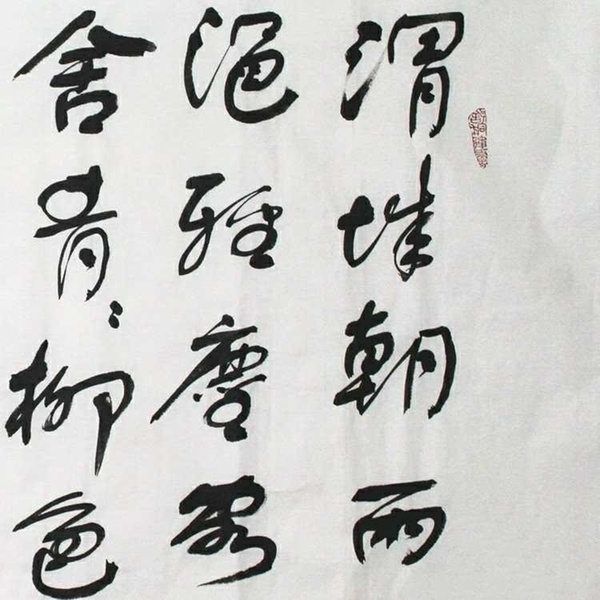 渭城朝雨
浥輕塵客
舍青々柳色